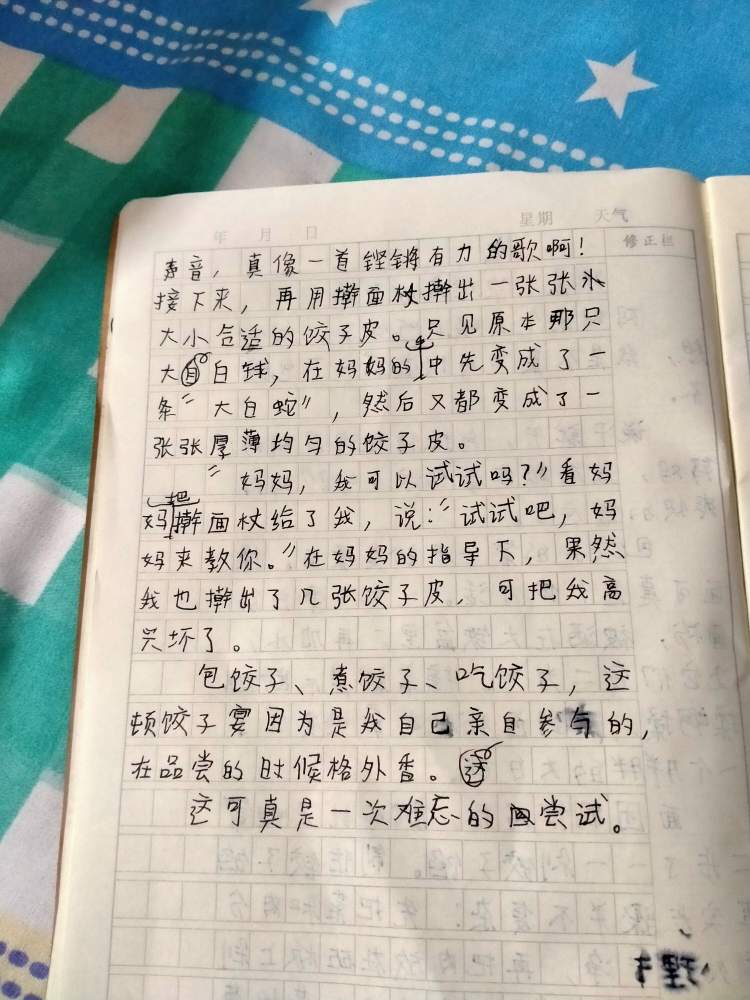 年 月 日 星期 天气
修正栏
声音，真像一首铿锵有力的歌啊！
接下来，再用擀面杖擀出一张张
大小合适的饺子皮。只见原本那只
大白球，在妈妈的手中先变成了一
条“大白蛇”，然后又都变成了一
张张厚薄均匀的饺子皮。
“妈妈，我可以试试吗？”看妈
妈把擀面杖给了我，说：“试试吧，妈
妈来教你。”在妈妈的指导下，果然
我也擀出了几张饺子皮，可把我高
兴坏了。
包饺子、煮饺子、吃饺子，这
顿饺子宴因为是我自己亲自参与的，
在品尝的时候格外香。
这可真是一次难忘的尝试。